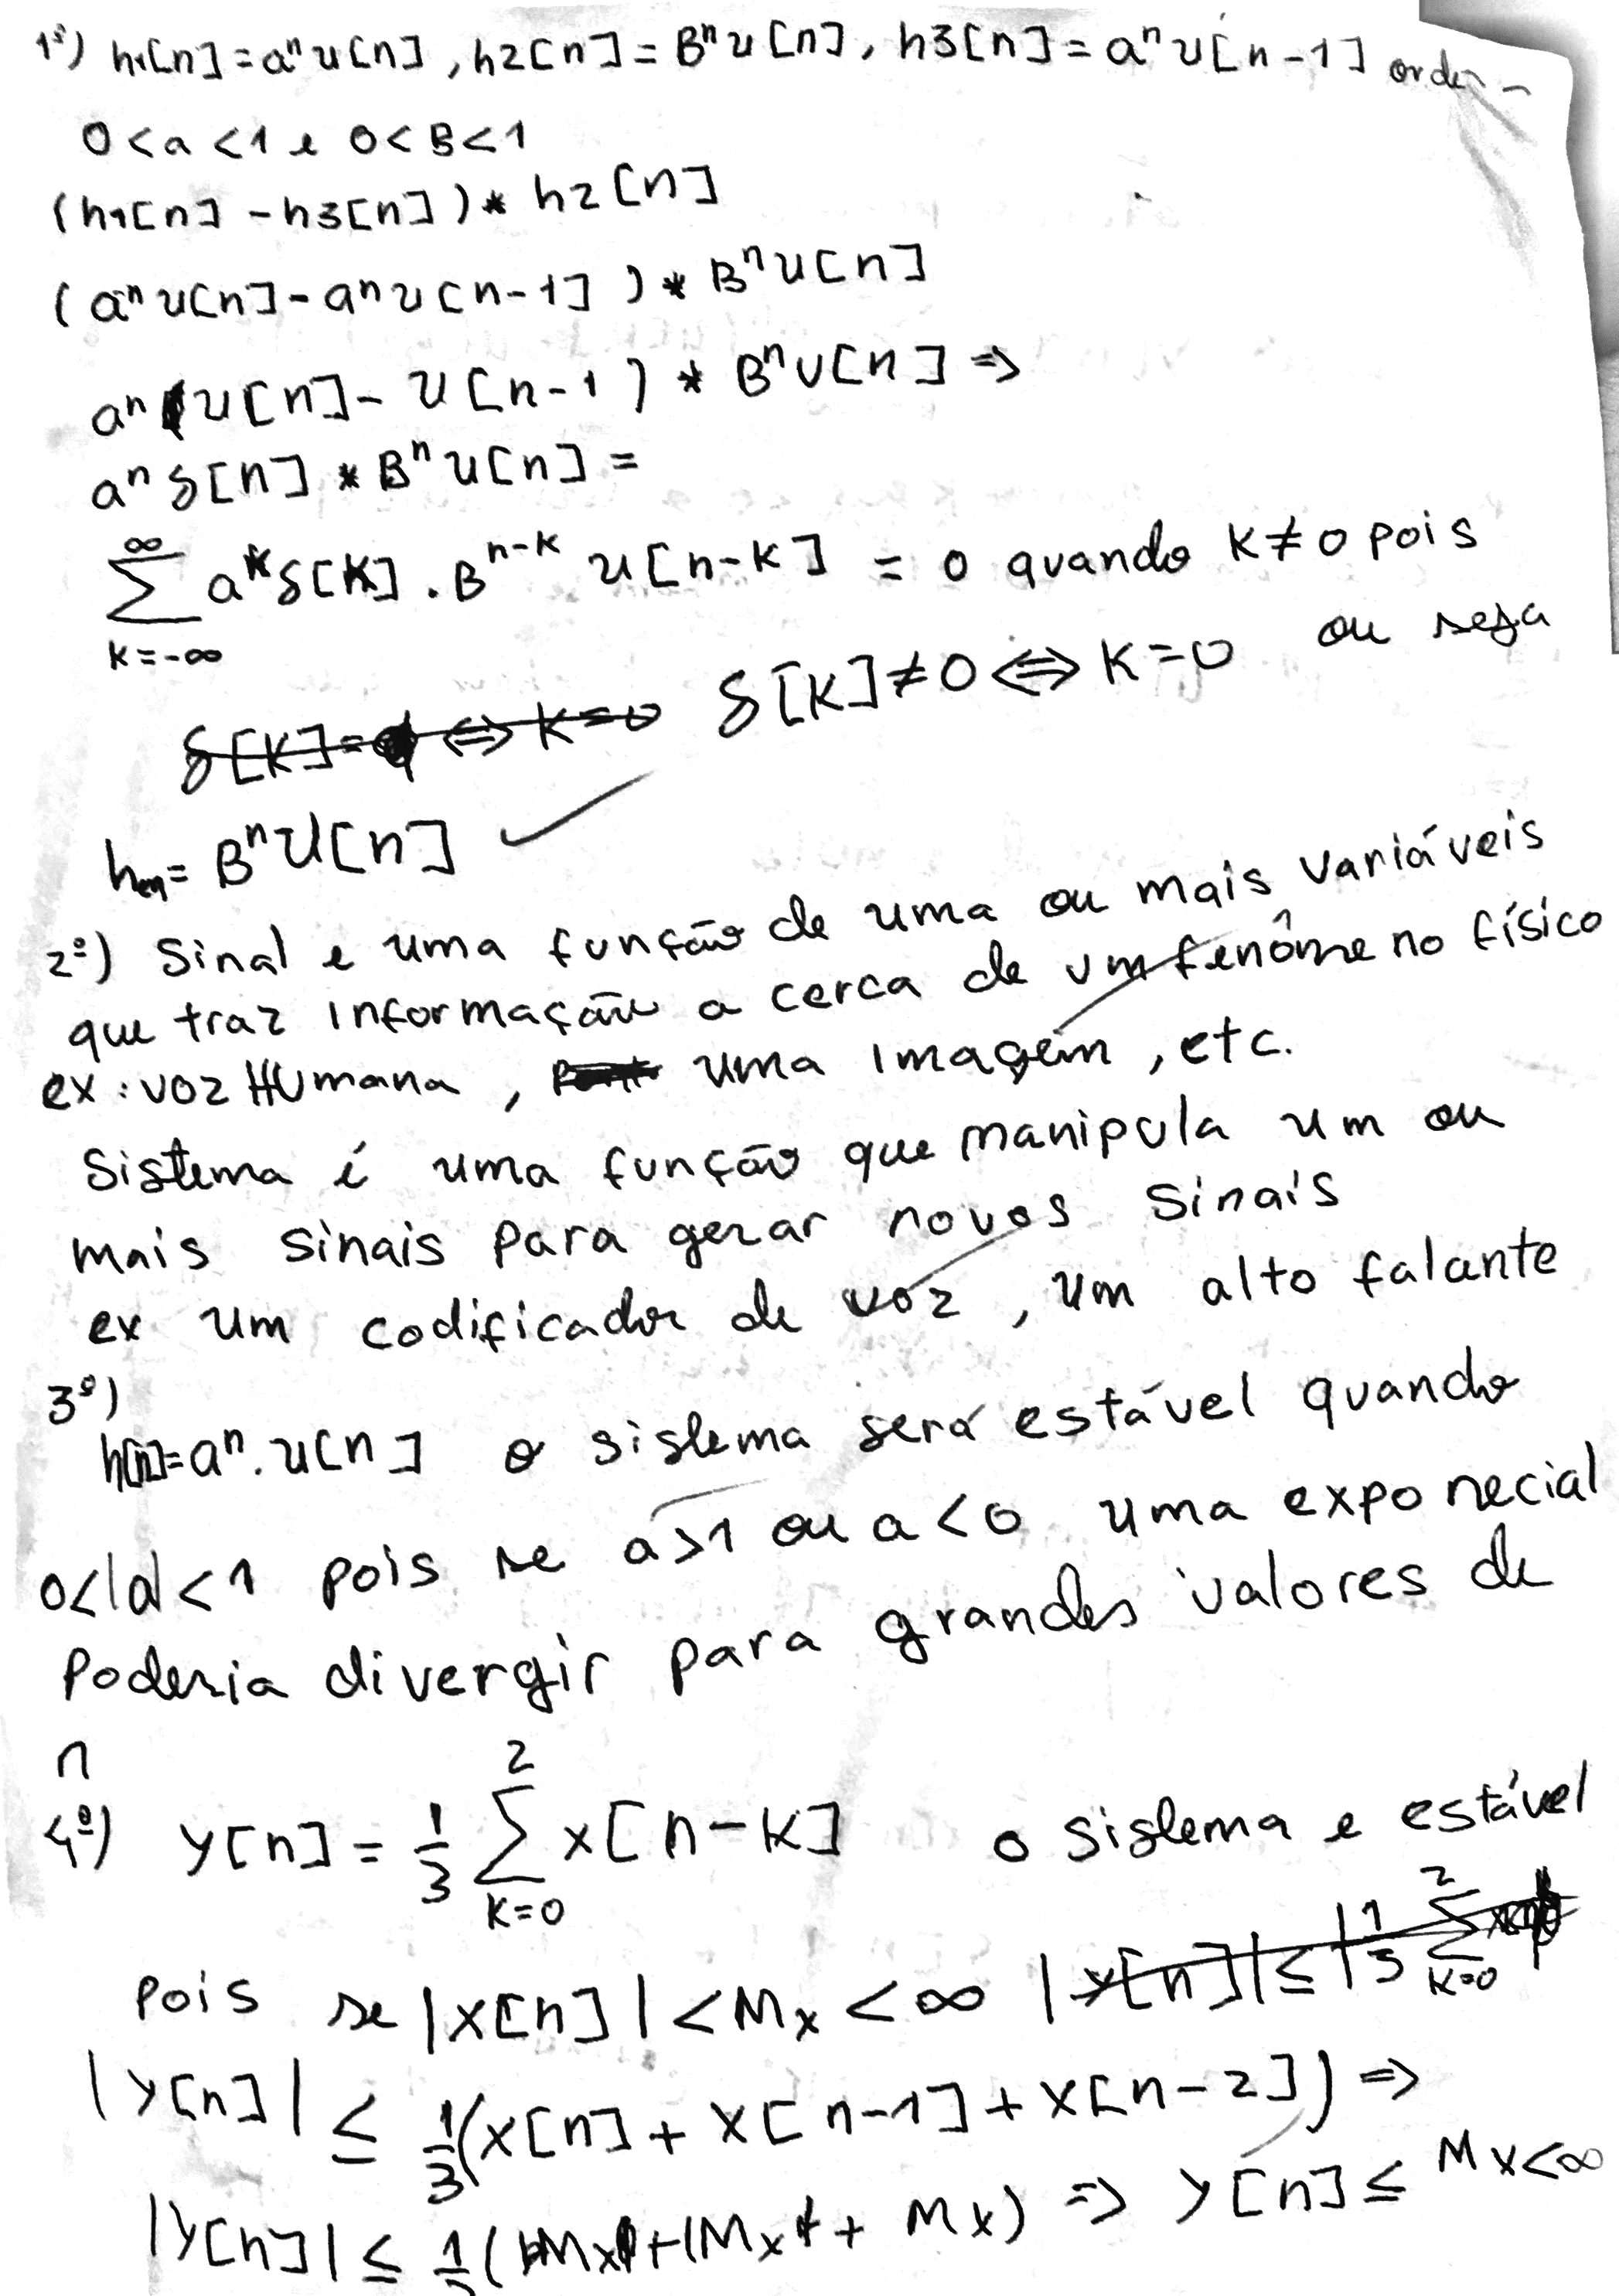 1º) h1[n]=aⁿu[n], h2[n]=Bⁿu[n], h3[n]=aⁿu[n-1] onde
0<a<1 e 0<B<1
(h1[n] - h3[n]) * h2[n]
(aⁿu[n]-aⁿu[n-1]) * Bⁿu[n]
aⁿ(u[n]- u[n-1) * Bⁿu[n] ⇒
aⁿ δ[n] * Bⁿu[n] =
∑_{k=-∞}^{∞} a^k δ[k] . B^{n-k} u[n-k] = 0 quando k≠0 pois
δ[k]≠0 ⇔ k=0 ou seja
h_eq = Bⁿu[n]
2º) Sinal e uma função de uma ou mais variáveis
que traz informação a cerca de um fenômeno físico
ex: voz Humana, uma imagem, etc.
Sistema é uma função que manipula um ou
mais sinais para gerar novos sinais
ex um codificador de voz, um alto falante
3º)
h[n]=aⁿ.u[n] o sistema será estável quando
0<|a|<1 pois se a>1 ou a<0 uma exponecial
Poderia divergir para grandes valores de
n
4º) y[n] = 1/3 ∑_{k=0}^{2} x[n-k] o sistema e estável
pois se |x[n]| < Mx < ∞ |y[n]| ≤ |1/3 ∑_{k=0}^{2}
|y[n]| ≤ 1/3(x[n] + x[n-1] + x[n-2]) ⇒
|y[n]| ≤ 1/3(Mx + Mx + Mx) ⇒ y[n] ≤ Mx<∞